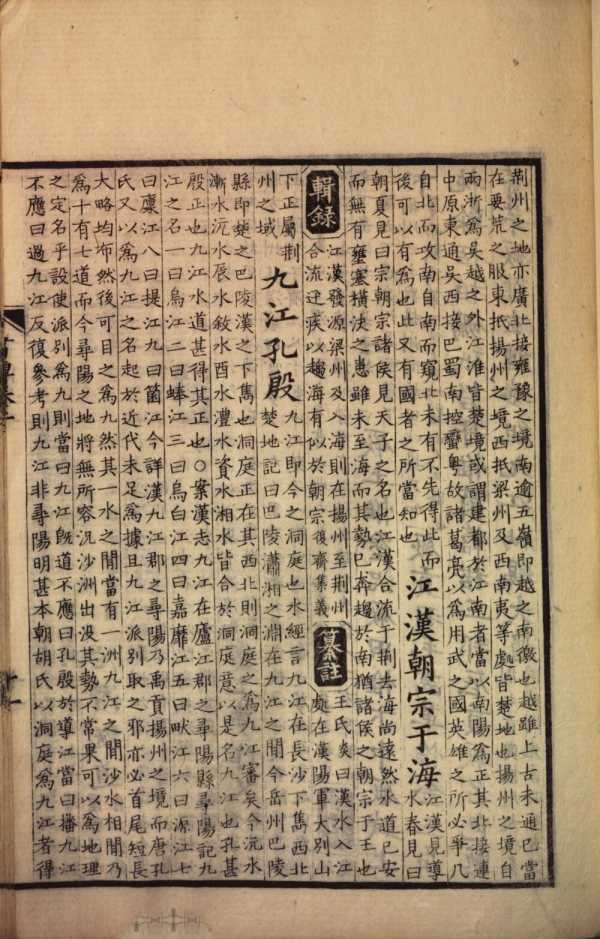 荆州之地亦廣北接雍豫之境南逾五嶺即越之南徼也越雖上古未通巴當
在要荒之服東抵揚州之境西抵梁州及西南夷等處皆楚地也揚州之境自
兩淅為吳越之外江淮皆楚境或謂建都於江南者當以南陽為正其北接連
中原東通吳西接巴蜀南控蠻粤故諸葛亮以為用武之國英雄之所必爭凡
自北而攻南自南而窺北未有不先得此而
後可以有為也此又有國者之所當知也
江漢朝宗于海
江漢見導
水春見曰
朝夏見曰宗朝宗諸侯見天子之名也江漢合流于荆去海尚遠然水道已安
而無有壅塞橫決之患雖未至海而其勢已奔趨於南猶諸侯之朝宗于王也
輯錄
江漢發源梁州及入海則在揚州至荆州
合流迂疾以趨海有似於朝宗復齋集義
纂註
王氏炎曰漢水入江
處在漢陽軍大別山
下正屬荆
州之域
九江孔殷
九江即今之洞庭也水經言九江在長沙下雋西北
楚地記曰巴陵瀟湘之淵在九江之間今岳州巴陵
縣即楚之巴陵漢之下雋也洞庭正在其西北則洞庭之為九江審矣今沅水
漸水沅水辰水敘水酉水澧水資水湘水皆合於洞庭意以是名九江也孔甚
殷正也九江水道甚得其正也○案漢志九江在廬江郡之尋陽縣尋陽記九
江之名一曰烏江二曰蜯江三曰烏白江四曰嘉靡江五曰畎江六曰源江七
曰廩江八曰提江九曰箘江今詳漢九江郡之尋陽乃禹貢揚州之境而唐孔
氏又以為九江之名起於近代未足為據且九江派別取之邪亦必首尾短長
大略均布然後可目之為九然其一水之間當有一洲九江之間沙水相間乃
為十有七道而今尋陽之地將無所容况沙洲出没其勢不常果可以為地理
之定名乎設使派別為九則當曰九江既道不應曰孔殷於導江當曰播九江
不應曰過九江反復參考則九江非尋陽明甚本朝胡氏以洞庭為九江者得